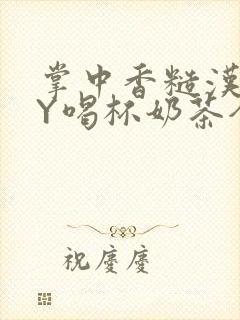 掌中香糙漢
Y喝杯奶茶
祝慶慶